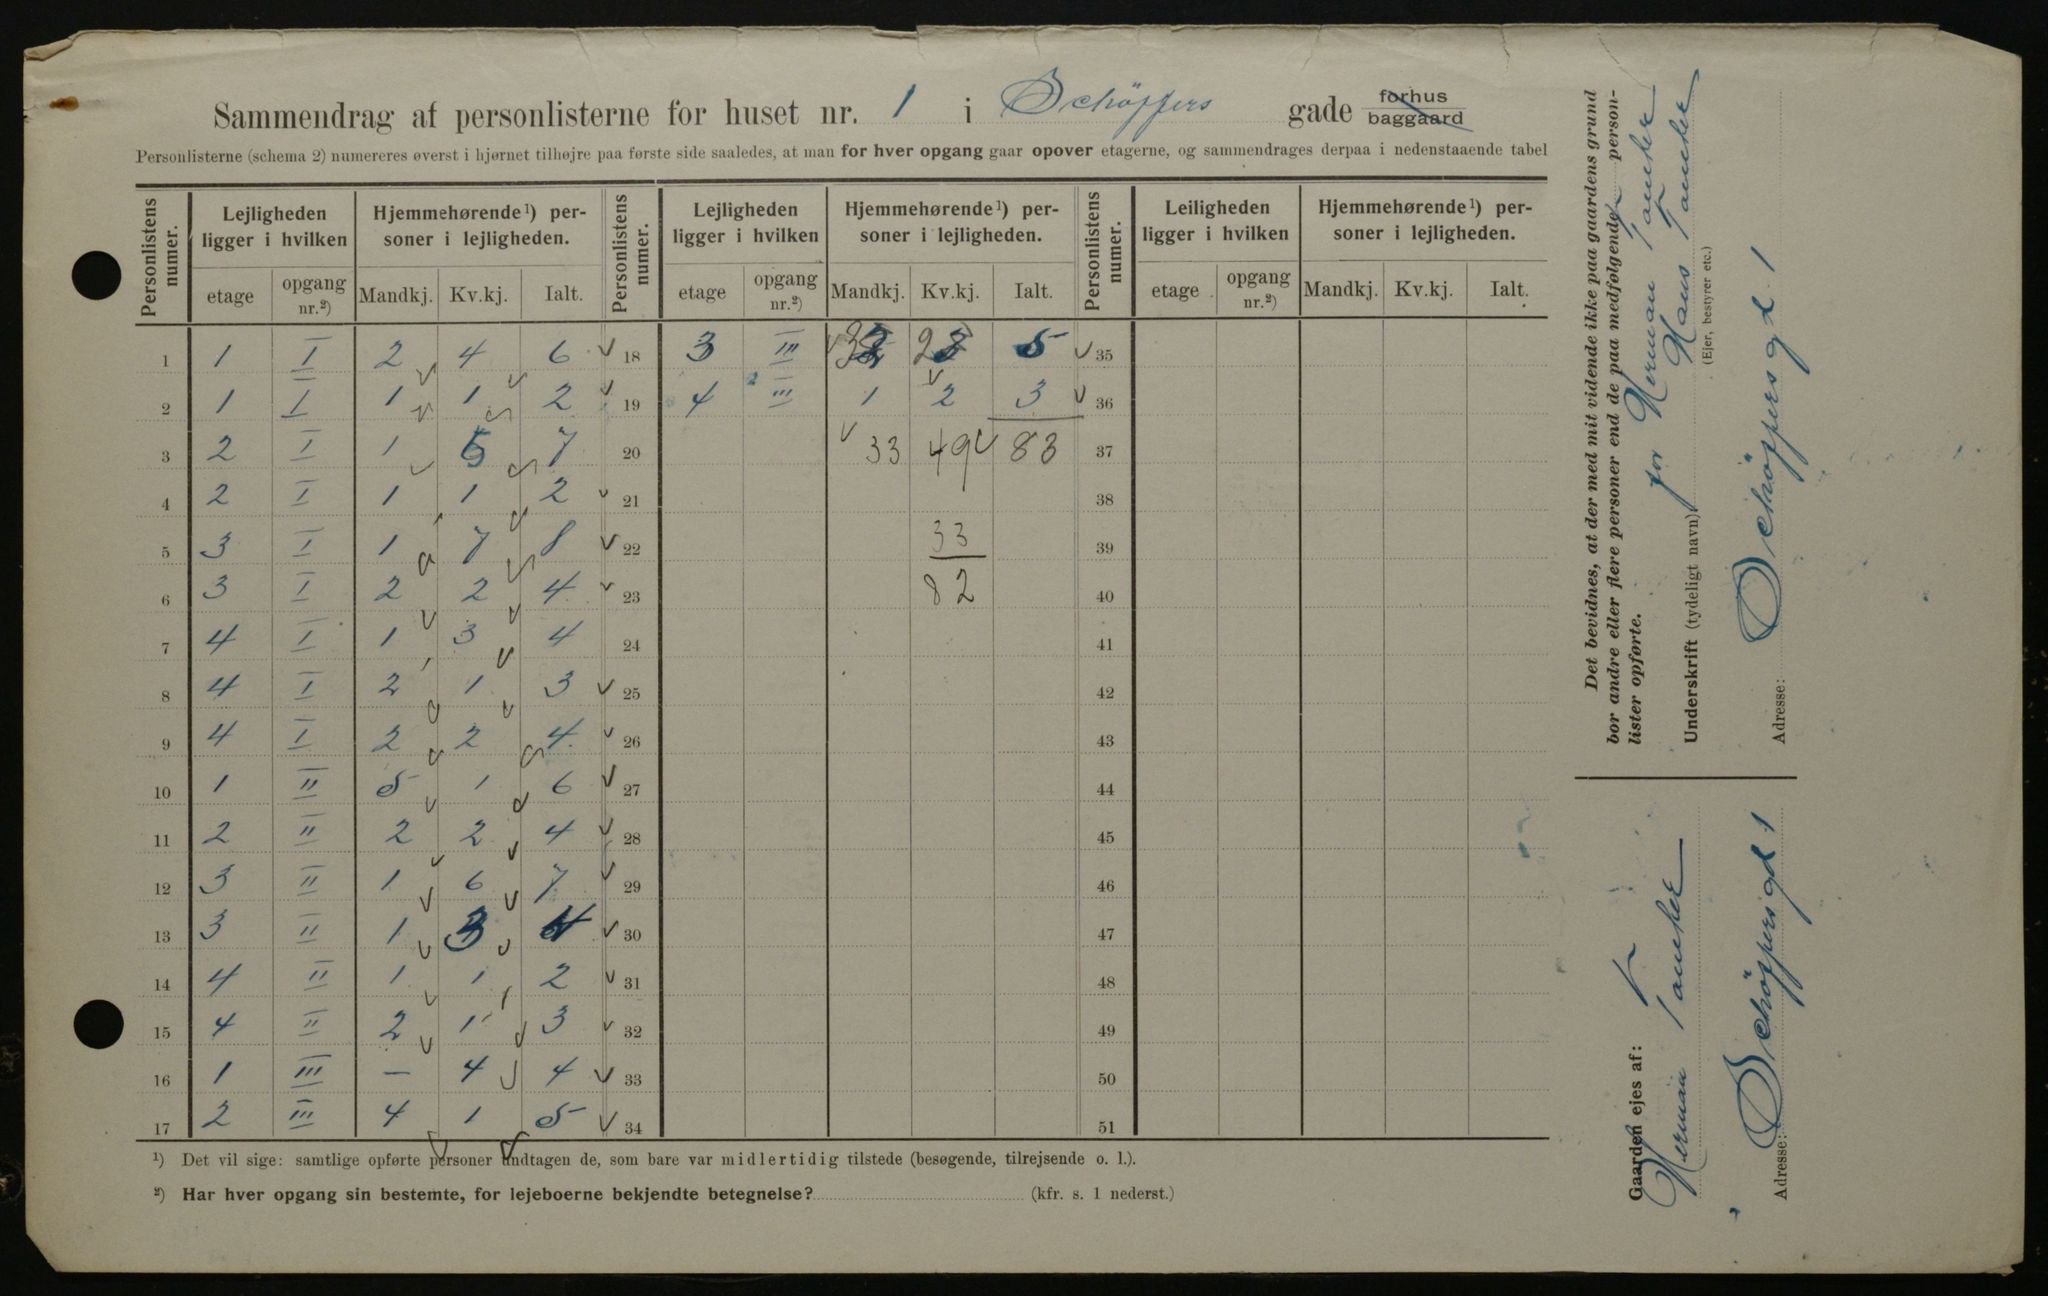 Sammendrag af personlisterne for huset nr. 1 i Schöppers gade forhus baggaard
Personlisterne (schema 2) numereres øverst i hjørnet tilhøjre paa første side saaledes, at man for hver opgang gaar opover etagerne, og sammendrages derpaa i nedenstaaende tabel
Personlistens numer. | Lejligheden ligger i hvilken | Hjemmehørende ¹) personer i lejligheden. | Personlistens numer. | Lejligheden ligger i hvilken | Hjemmehørende ¹) personer i lejligheden. | Personlistens numer. | Leiligheden ligger i hvilken | Hjemmehørende ¹) personer i lejligheden.
etage | opgang nr.²) | Mandkj. | Kv.kj. | Ialt. | etage | opgang nr.²) | Mandkj. | Kv.kj. | Ialt. | etage | opgang nr.²) | Mandkj. | Kv.kj. | Ialt.
1 | 1 | I | 2 | 4 | 6 | 18 | 3 | III | 3 | 2 | 5 | 35
2 | 1 | I | 1 | 1 | 2 | 19 | 4 | III | 1 | 2 | 3 | 36
3 | 2 | I | 1 | 6 | 7 | 20 | 33 | 49 | 83 | 37
4 | 2 | I | 1 | 1 | 2 | 21 | 38
5 | 3 | I | 1 | 7 | 8 | 22 | 33 | 39
6 | 3 | I | 2 | 2 | 4 | 23 | 82 | 40
7 | 4 | I | 1 | 3 | 4 | 24 | 41
8 | 4 | I | 2 | 1 | 3 | 25 | 42
9 | 4 | I | 2 | 2 | 4 | 26 | 43
10 | 1 | II | 5 | 1 | 6 | 27 | 44
11 | 2 | II | 2 | 2 | 4 | 28 | 45
12 | 3 | II | 1 | 6 | 7 | 29 | 46
13 | 3 | II | 1 | 3 | 4 | 30 | 47
14 | 4 | II | 1 | 1 | 2 | 31 | 48
15 | 4 | II | 2 | 1 | 3 | 32 | 49
16 | 1 | III | — | 4 | 4 | 33 | 50
17 | 2 | III | 4 | 1 | 5 | 34 | 51
¹) Det vil sige: samtlige opførte personer undtagen de, som bare var midlertidig tilstede (besøgende, tilrejsende o. l.).
²) Har hver opgang sin bestemte, for lejeboerne bekjendte betegnelse? (kfr. s. 1 nederst.)
Det bevidnes, at der med mit vidende ikke paa gaardens grund
bor andre eller flere personer end de paa medfølgende personlister opførte.
for Herman Tanker
Underskrift (tydeligt navn) Hans Tanker
(Ejer, bestyrer etc.)
Adresse: Schöppersgd. 1
Gaarden ejes af:
Herman Tanker
Adresse: Schöppersgd 1